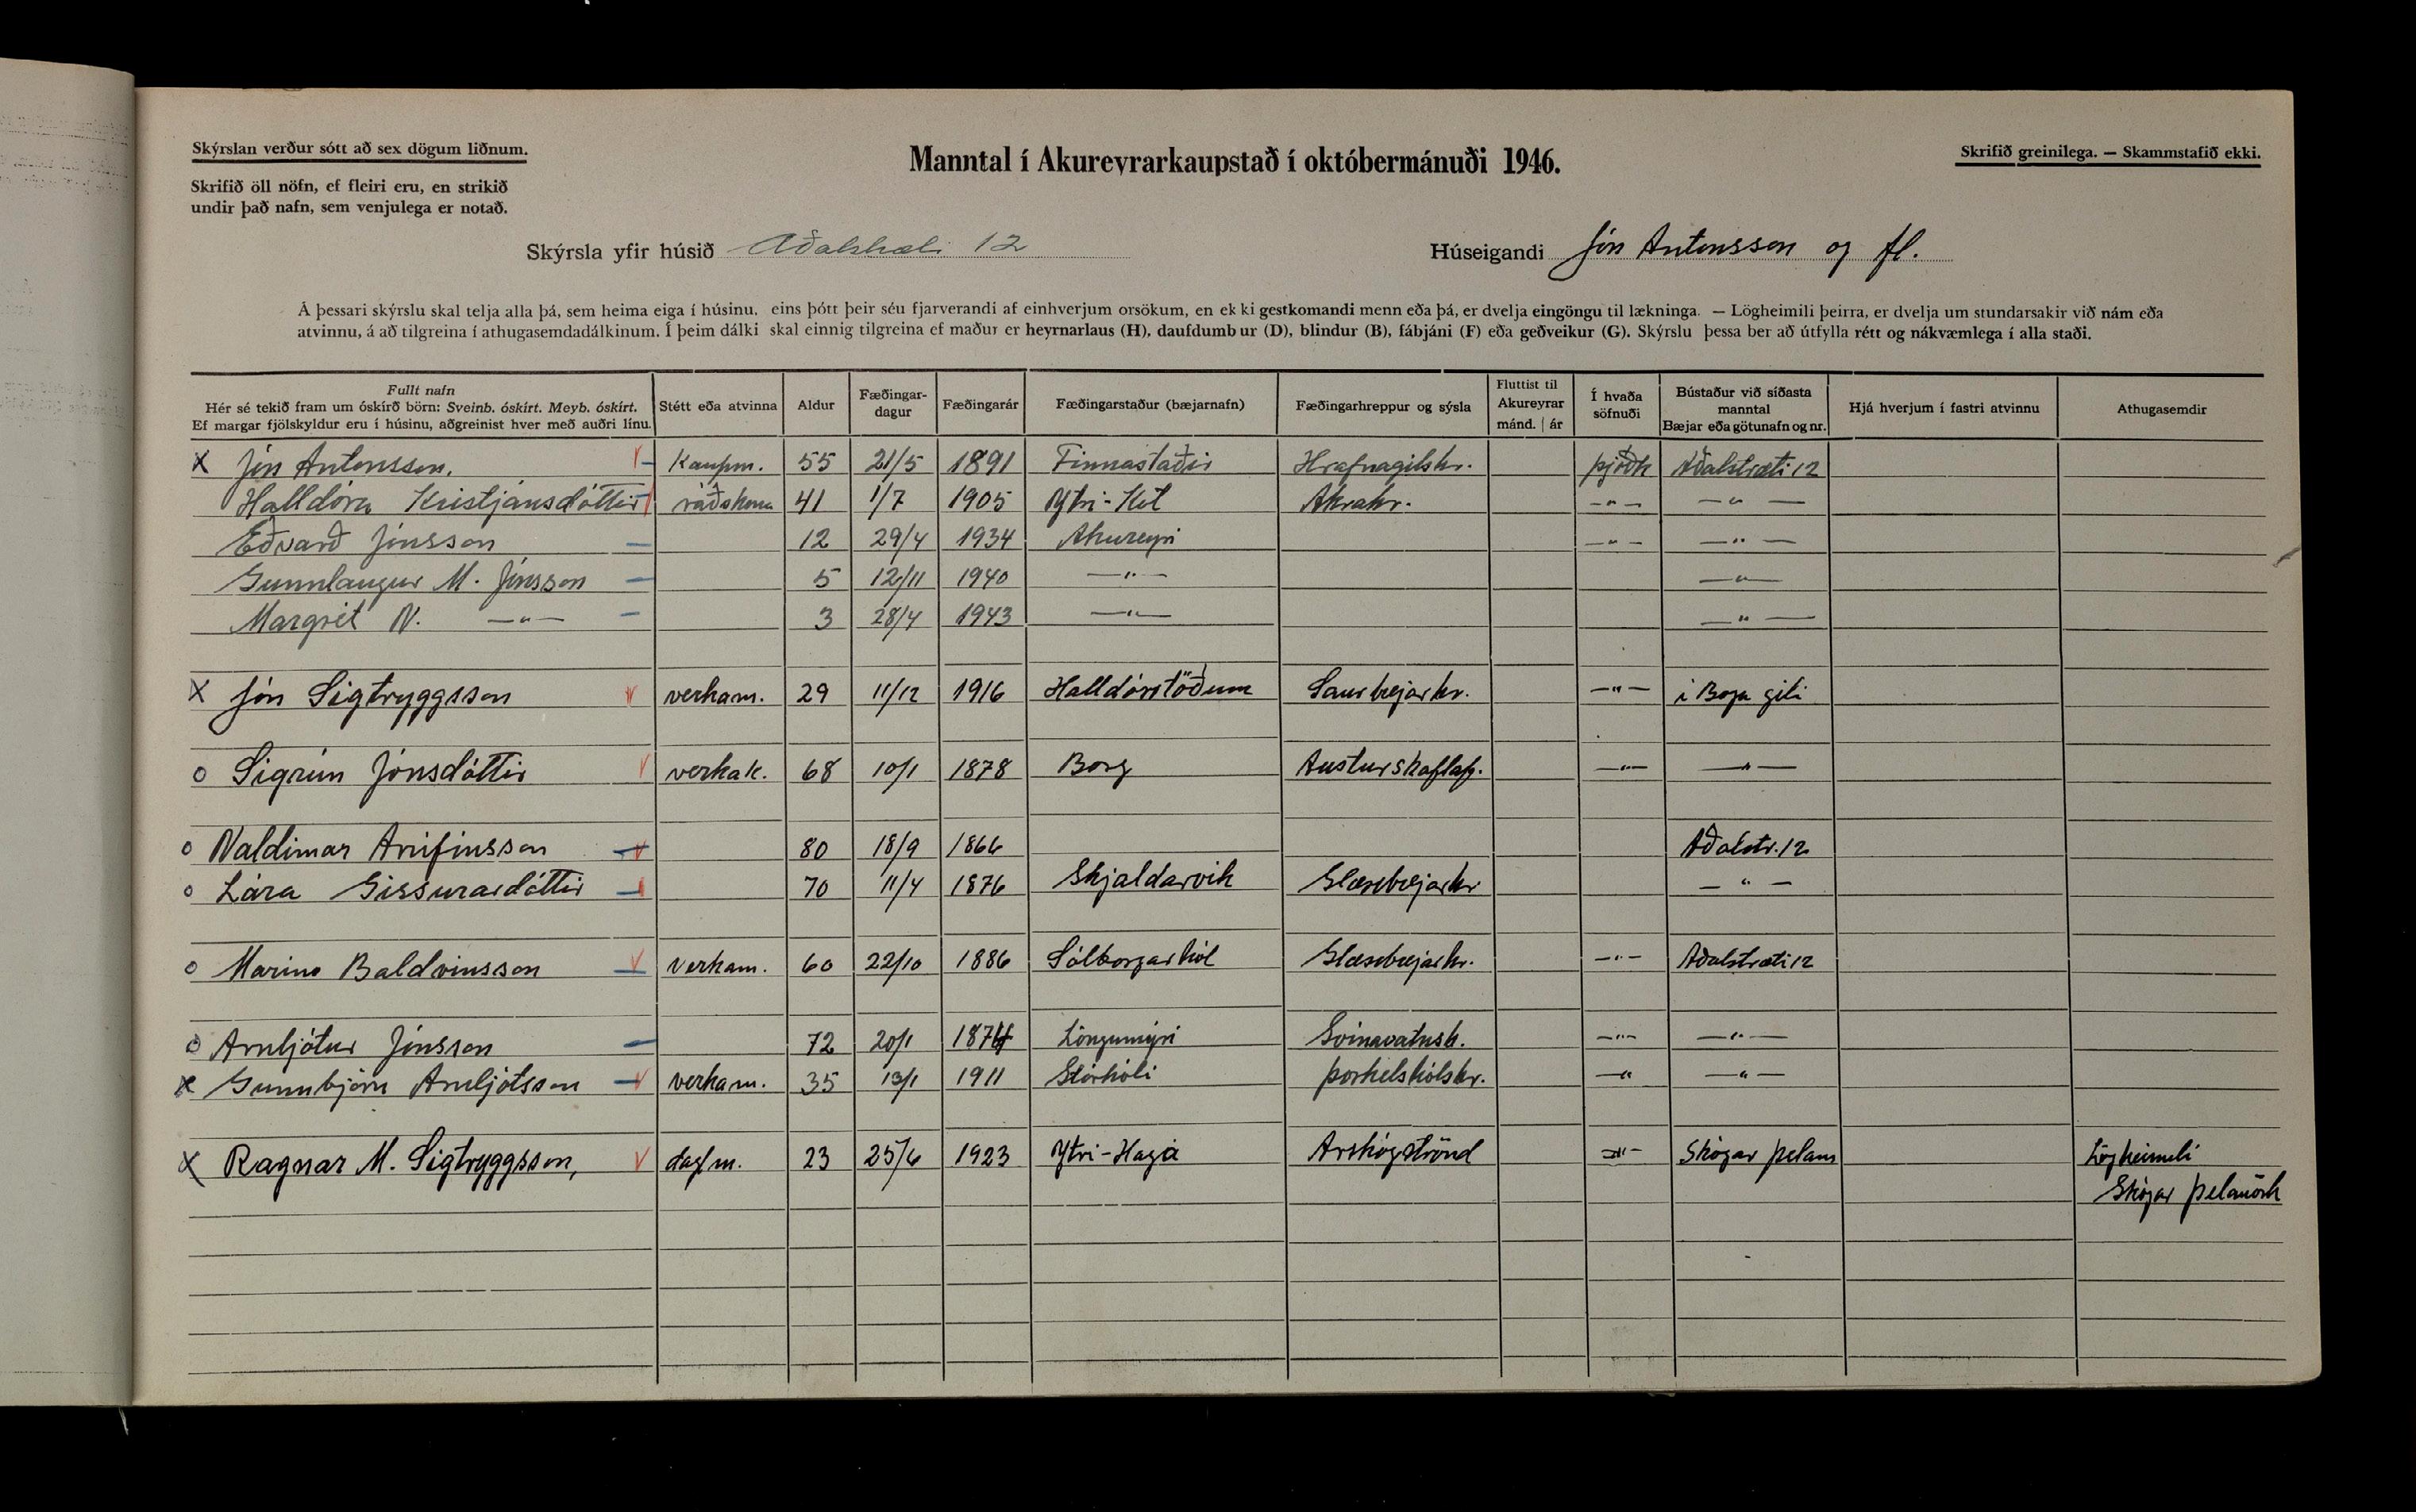 Skýrslan verður sótt að sex dögum liðnum.
Manntal í Akureyrarkaupstað í októbermánuði 1946.
Skrifið greinilega. — Skammstafið ekki.
Skrifið öll nöfn, ef fleiri eru, en strikið
undir það nafn, sem venjulega er notað.
Skýrsla yfir húsið Aðalstræti 12
Húseigandi Jón Antonsson og fl.
Á þessari skýrslu skal telja alla þá, sem heima eiga í húsinu, eins þótt þeir séu fjarverandi af einhverjum orsökum, en ekki gestkomandi menn eða þá, er dvelja eingöngu til lækninga. — Lögheimili þeirra, er dvelja um stundarsakir við nám eða
atvinnu, á að tilgreina í athugasemdadálkinum. Í þeim dálki skal einnig tilgreina ef maður er heyrnarlaus (H), daufdumbur (D), blindur (B), fábjáni (F) eða geðveikur (G). Skýrslu þessa ber að útfylla rétt og nákvæmlega í alla staði.
Fullt nafn
Hér sé tekið fram um óskírð börn: Sveinb. óskírt. Meyb. óskírt.
Ef margar fjölskyldur eru í húsinu, aðgreinist hver með auðri línu.
Stétt eða atvinna
Aldur
Fæðingar-
dagur
Fæðingarár
Fæðingarstaður (bæjarnafn)
Fæðingarhreppur og sýsla
Fluttist til
Akureyrar
mánd. | ár
Í hvaða
söfnuði
Bústaður við síðasta
manntal
Bæjar eða götunafn og nr.
Hjá hverjum í fastri atvinnu
Athugasemdir
X Jón Antonsson. Kaupm. 55 21/5 1891 Finnastaðir Hrafnagilshr. þjóðk Aðalstræti 12
Halldóra Kristjánsdóttir ráðskona 41 1/7 1905 Ytri-Kot Akrahr. —"— —"—
Eðvarð Jónsson 12 29/4 1934 Akureyri —"— —"—
Gunnlaugur M. Jónsson 5 12/11 1940 —"— —"—
Margrét N. —"— 3 28/4 1943 —"— —"—
X Jón Sigtryggsson verkam. 29 11/12 1916 Halldórstöðum Saurbæjarhr. —"— í Boga gili
o Sigrún Jónsdóttir verkak. 68 10/1 1878 Borg Austurskaftap. —"— —"—
o Valdimar Arnfinsson 80 18/9 1866 Aðalstr. 12
o Lára Gissurardóttir 70 11/4 1876 Skjaldarvík Glæsibæjarhr —"—
o Marino Baldvinsson verkam. 60 22/10 1886 Sólborgarhól Glæsibæjarhr. —"— Aðalstræti 12
o Arnljótur Jónsson 72 20/1 1874 Löngumýri Svínavatnsh. —"— —"—
X Gunnbjörn Arnljótsson verkam. 35 13/1 1911 Stórhóli Þorkelshólshr. —"— —"—
X Ragnar M. Sigtryggsson, dagl m. 23 25/6 1923 Ytri-Haga Arskógströnd —"— Skógar Þelam Lögheimili
Skógar Þelamörk